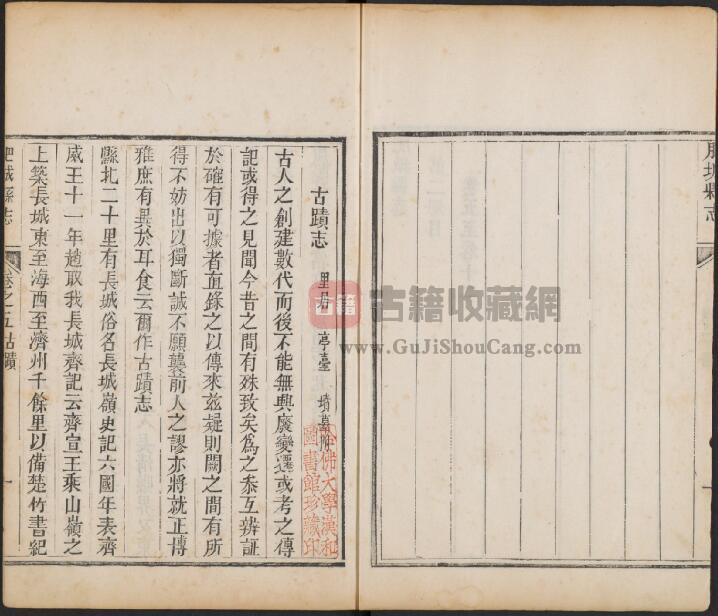 肥城縣志
古蹟志
里居 亭臺 墳墓附
古人之創建數代而後不能無興廢變遷或考之傳
記或得之見聞今昔之間有殊致矣爲之叅互辨証
於確有可據者直錄之以傳來兹疑則闕之間有所
得不妨出以獨斷誠不願襲前人之謬亦將就正博
雅庶有異於耳食云爾作古蹟志
縣北二十里有長城俗名長城嶺史記六國年表齊
威王十一年趙取我長城齊記云齊宣王乘山嶺之
上築長城東至海西至濟州千餘里以備楚竹書紀
肥城縣志
卷之五古蹟
一
哈佛大學漢和
圖書館珍藏印
古籍
古籍收藏網
www.GuJiShouCang.com